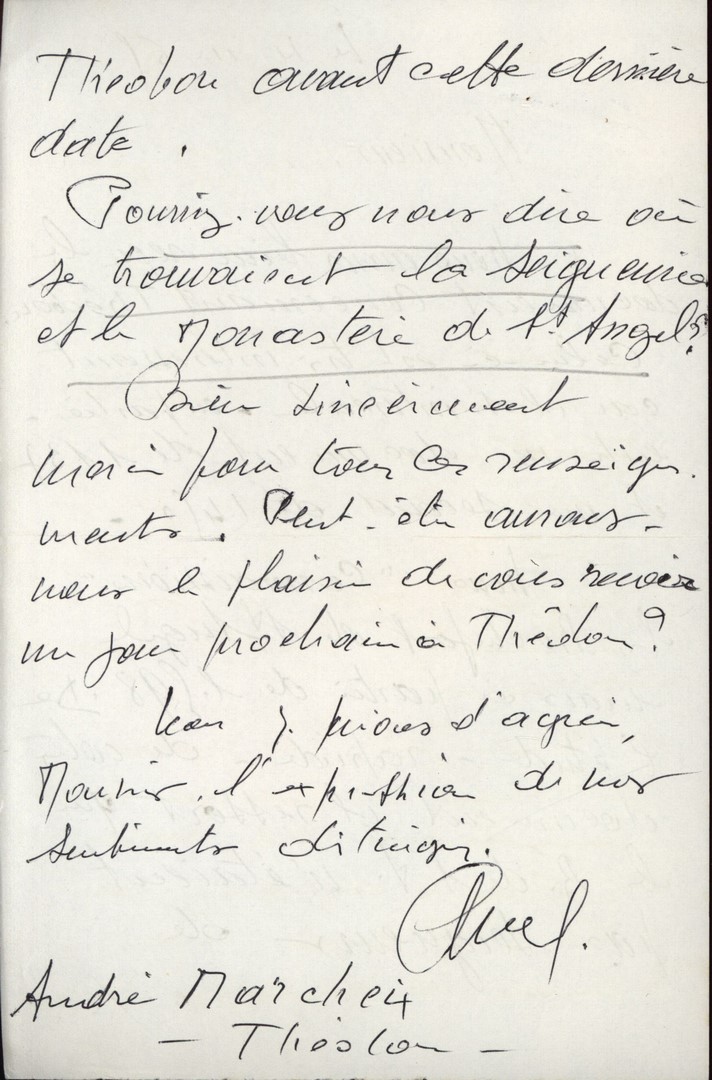 Théobon avant cette dernière
date.
Pourriez-vous nous dire où
se trouvaient la Seigneurie
et le Monastère de St Angel?
Bien sincèrement
merci pour tous ces renseigne-
ments. Peut-être aurons-
nous le plaisir de vous revoir
un jour prochain à Théobon?
Nous vous prions d'agréer,
Monsieur, l'expression de nos
sentiments distingués.
André Marcheix
- Théobon -